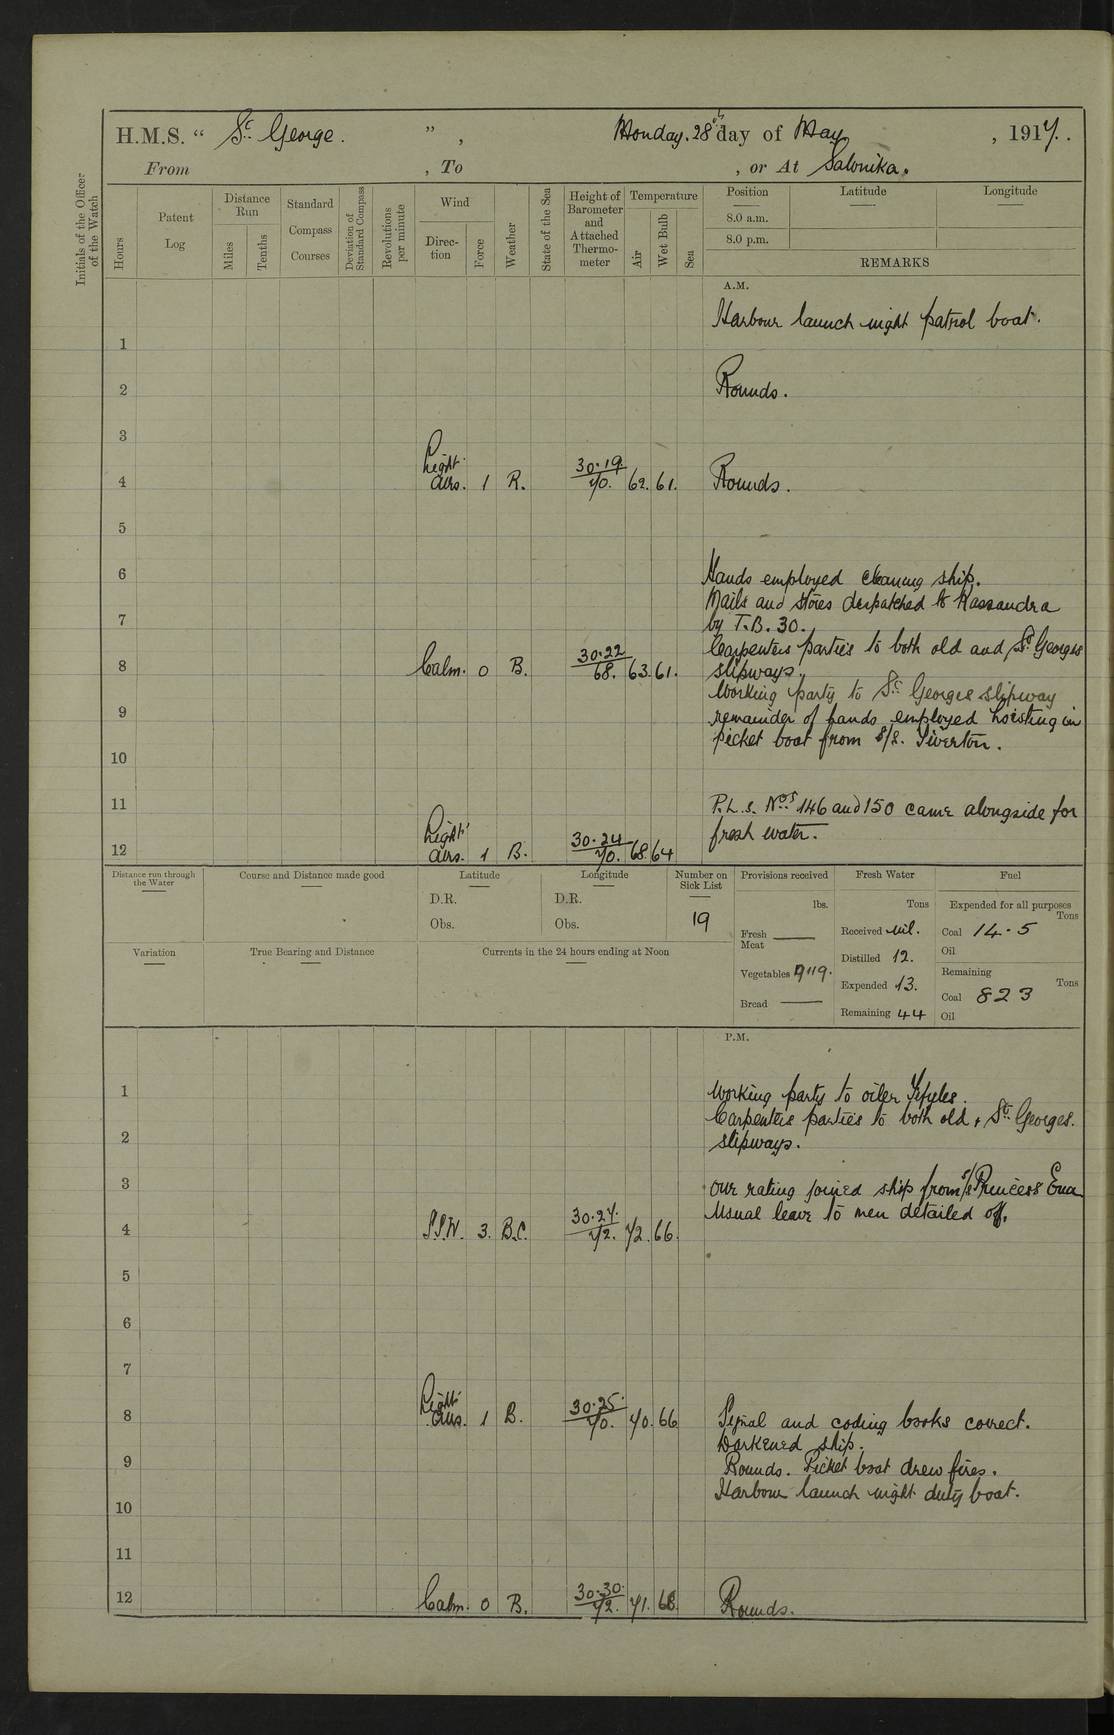 H.M.S. “ St. George. ” , Monday. 28th day of May , 1917.
From , To , or At Salonika.
Initials of the Officer of the Watch
Hours
Patent Log
Distance Run
Miles
Tenths
Standard Compass Courses
Deviation of Standard Compass
Revolutions per minute
Wind
Direc-tion
Force
Weather
State of the Sea
Height of Barometer and Attached Thermo-meter
Temperature
Air
Wet Bulb
Sea
Position Latitude Longitude
8.0 a.m.
8.0 p.m.
REMARKS
A.M.
Harbour launch night patrol boat.
1
2 Rounds.
3
Light 30.19
4 airs. 1 R. 70. 62. 61. Rounds.
5
6 Hands employed cleaning ship.
Mails and stores despatched to Kassandra
7 by T.B. 30.
Carpenters parties to both old and St Georges
30.22
8 Calm. 0 B. 68. 63. 61. slipways.
Working party to St. Georges slipway
9 remainder of hands employed hoisting in
picket boat from S/S. Tiverton.
10
11 P.L.S. Nos 146 and 150 came alongside for
Light fresh water.
30.24
12 airs. 1 B. 70. 68. 64
Distance run through the Water
Course and Distance made good
Latitude
D.R.
Obs.
Longitude
D.R.
Obs.
Number on Sick List
19
Provisions received
lbs.
Fresh Meat
Vegetables 9119.
Bread
Fresh Water
Tons
Received Nil.
Distilled 12.
Expended 13.
Remaining 44
Fuel
Expended for all purposes
Tons
Coal 14.5
Oil
Remaining
Tons
Coal 823
Oil
Variation
True Bearing and Distance
Currents in the 24 hours ending at Noon
P.M.
1 Working party to oiler
Carpenters parties to both old & St. Georges.
2 slipways.
3 One rating joined ship from S/S Princess Ena
Usual leave to men detailed off.
30.27.
4 S.S.W. 3. B.C. 72. 72. 66.
5
6
7
Light 30.25.
8 airs. 1 B. 70. 70. 66 Signal and coding books correct.
Darkened ship.
9 Rounds. Picket boat drew fires.
Harbour launch night duty boat.
10
11
30.30.
12 Calm. 0 B. 72. 71. 68. Rounds.